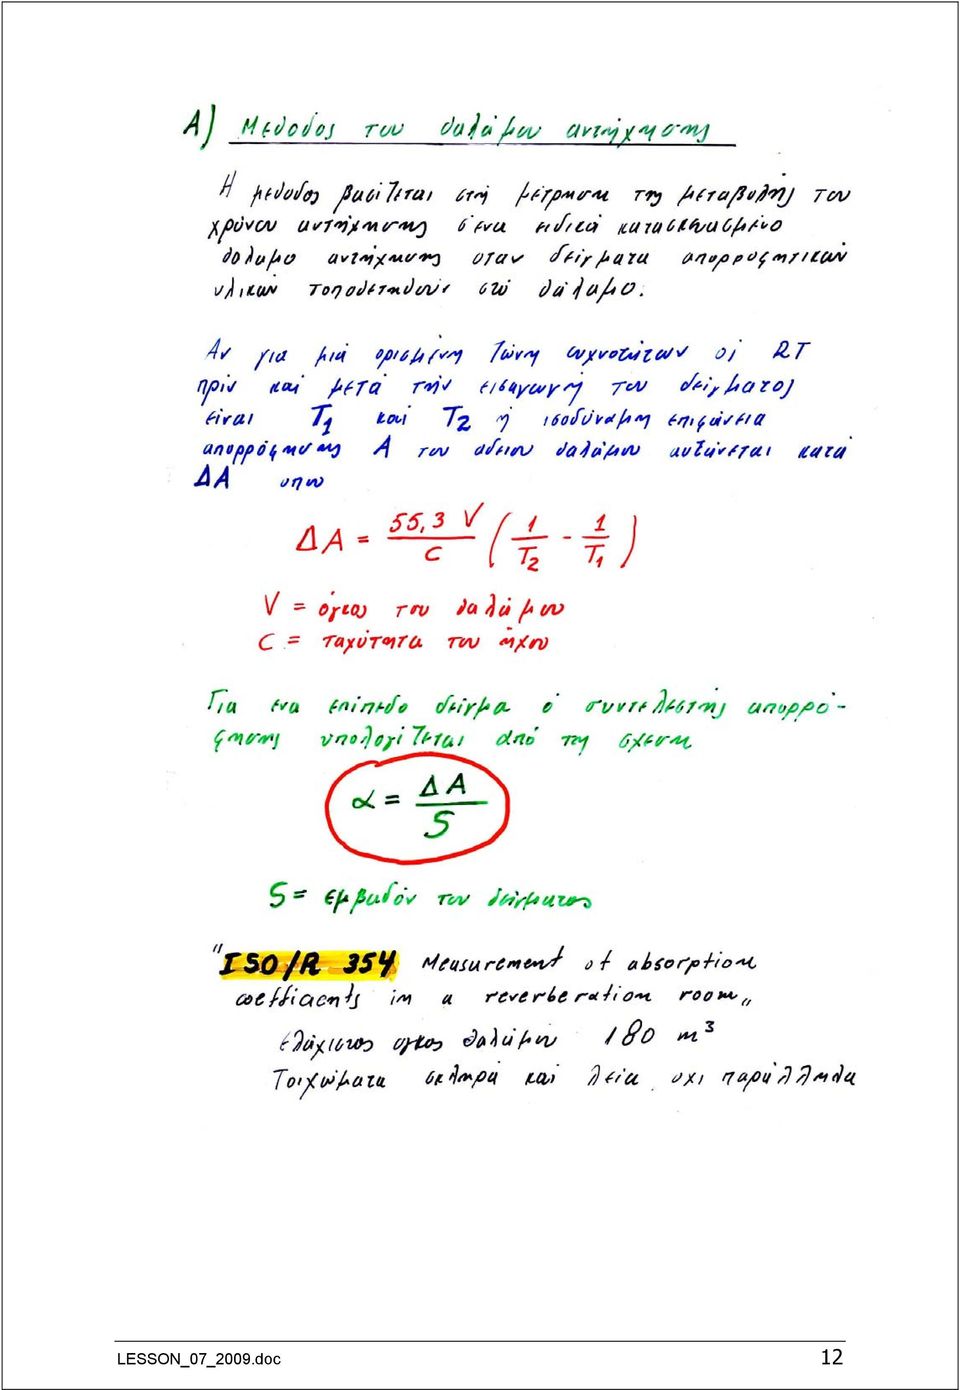 Α) Μεθοδος του θαλάμου αντήχησης
Η μεθοδος βασίζεται στή μέτρηση της μεταβολής του
χρόνου αντήχησης σ ενα ειδικά κατασκευασμένο
θαλαμο αντήχησης οταν δείγματα απορροφητικων
υλικων τοποθετηθουν στό θάλαμο.
Αν για μιά ορισμένη ζώνη συχνοτήτων οι RT
πρίν και μετά τήν εισαγωγή του δείγματος
είναι T1 και T2 ή ισοδύναμη επιφάνεια
απορρόφησης A του αδειου θαλάμου αυξάνεται κατά
ΔΑ οπου
ΔΑ = 55,3 V / C ( 1/T2 - 1/T1 )
V = όγκος του θαλάμου
C = ταχύτητα του ήχου
Για ενα επίπεδο δείγμα ό συντελεστής απορρό-
φησης υπολογίζεται από τη σχεση
α = ΔΑ / S
S = εμβαδόν του δείγματος
"ISO/R 354 Measurement of absorption
coefficients in a reverberation room„
Ελάχιστος ογκος θαλάμου 180 m³
Τοιχώματα σκληρά και λεία οχι παράλληλα
LESSON_07_2009.doc 12